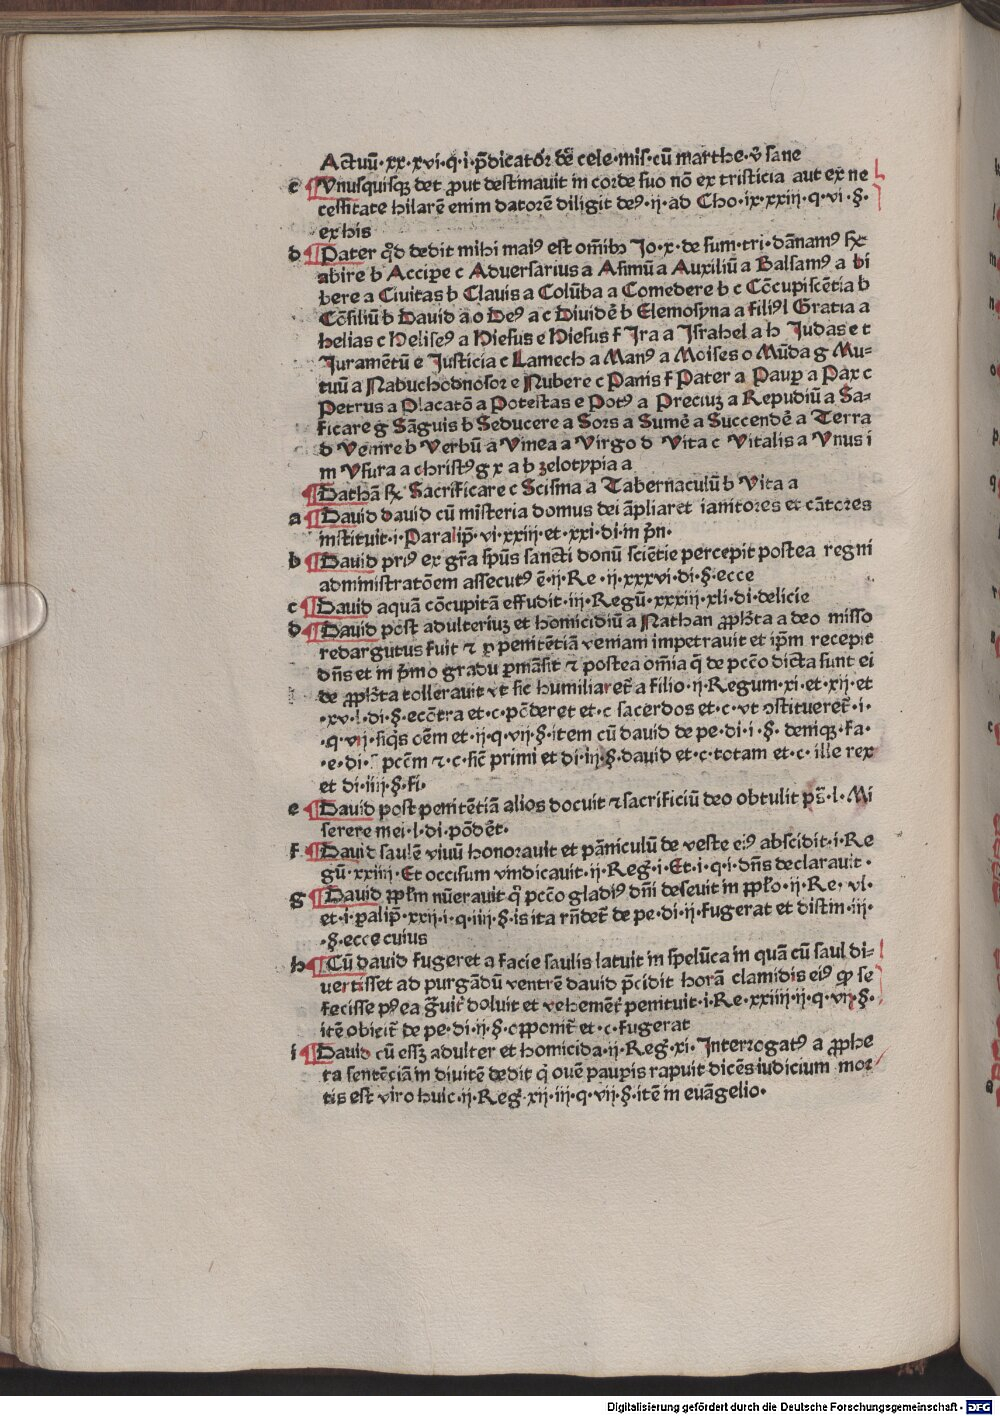 Actuū·xx·xvi·q·i·p̄dicator̄ dē cele·mis·cū marthe·v̄ sane
c ¶Vnusquisqꝫ det ꝓut destinauit in corde suo nō ex tristicia aut ex ne
cessitate hilarē enim datorē diligit deꝰ·ij·ad Cho·ix·xxiij·q·vi·§·
ex his
d ¶Pater qd̄ dedit mihi maiꝰ est om̄ib Jo·x·de sum·tri·dānamꝰ
abire b Accipe c Aduersarius a Asinū a Auxiliū a Balsamꝰ a bi
bere a Ciuitas b Clauis a Colūba a Comedere b c Cōcupiscētia b
Cōsiliū b Dauid a o Deꝰ a c Diuidē b Elemosyna a filiꝰ l Gratia a
helias c Heliseꝰ a Hiesus e Hiesus f Ira a Israhel a h Judas e t
Juramētū e Justicia c Lamech a Manꝰ a Moises o Mūda g Mu-
tuū a Nabuchodnosor e Nubere c Panis f Pater a Paup̱ a Pax c
Petrus a Placatō a Potestas e Potꝰ a Preciuꝫ a Repudiū a Sa-
ficare g Sāguis b Seducere a Sors a Sumē a Succendē a Terra
d Venire b Verbū a Vinea a Virgo d Vita c Vitalis a Vnus i
m Vsura a christꝰ g x a b zelotypia a
¶Dathā Sacrificare c Scisma a Tabernaculū b Vita a
a ¶Dauid dauid cū misteria domus dei āpliaret ianitores et cātores
instituit·i·Paralip̄·vi·xxiij·et·xxi·di·in p̄n·
b ¶Dauid priꝰ ex gr̄a sp̄us sancti donū sciētie percepit postea regni
administratōem assecutꝰ ē·ij·Re·ij·xxxvi·di·§·ecce
c ¶Dauid aquā cōcupitā effudit·iij·Regū·xxxiij·xli·di·delicie
d ¶Dauid post adulteriuꝫ et homicidiū a Nathan ꝓph̄ta a deo misso
redargutus fuit ⁊ ꝑ penitētiā veniam impetrauit et ip̄m recepit
dn̄s et in p̄mo gradu ꝑmāsit ⁊ postea om̄ia q̄ de pcc̄o dicta sunt ei
de ꝓph̄ta tollerauit vt sic humiliaret̄ a filio·ij·Regum·xi·et·xij·et
·xv·l·di·§·ecōtra et·c·pōderet et·c sacerdos et·c·vt ↄstitueret̄·i·
·q·vij·siq̄s oēm et·ij·q·vij·§·item cū dauid de pe·di·i·§·deniqꝫ·ka·
·e·di· pcc̄m ⁊·c·sic̄ primi et di·iij·§·dauid et·c·totam et·c·ille rex
et di·iiij·§·fi·
e ¶Dauid post penitētiā alios docuit ⁊ sacrificiū deo obtulit ps̄·l·Mi
serere mei·l·di·pōdēt·
f ¶Dauid saulē viuū honorauit et pāniculū de veste eiꝰ abscidit·i·Re
gū·xxiiij·Et occisum vindicauit·ij·Reg·i·Et·i·q·i·dn̄s declarauit·
g ¶Dauid ꝓpl̄m nūerauit q̊ pcc̄o gladiꝰ dn̄i deseuit in ꝓpl̄o·ij·Re·vl·
et·i·ꝑalip̄·xxij·i·q·iiij·§·is ita rn̄det̄ de pe·di·ij·fugerat et distin·iij·
·§·ecce cuius
h ¶Cū dauid fugeret a facie saulis latuit in spelūca in quā cū saul di-
uertisset ad purgādū ventrē dauid p̄cidit horā clamidis eiꝰ qͦ se
fecisse pꝰea ḡuit̄ doluit et vehemēt̄ penituit·i·Re·xxiiij·ij·q·vij·§·
itē obicit̄ de pe·di·ij·§·opponit̄ et·c·fugerat
i ¶Dauid cū essꝫ adulter et homicida·ij·Reg̊·xi·Interrogatꝰ a ꝓphe
ta sentēciā in diuitē dedit q̊ ouē pauꝑis rapuit dicēs iudicium mor
tis est viro huic·ij·Reg̊·xij·iij·q·vij·§·itē in euāgelio·
Digitalisierung gefördert durch die Deutsche Forschungsgemeinschaft - DFG